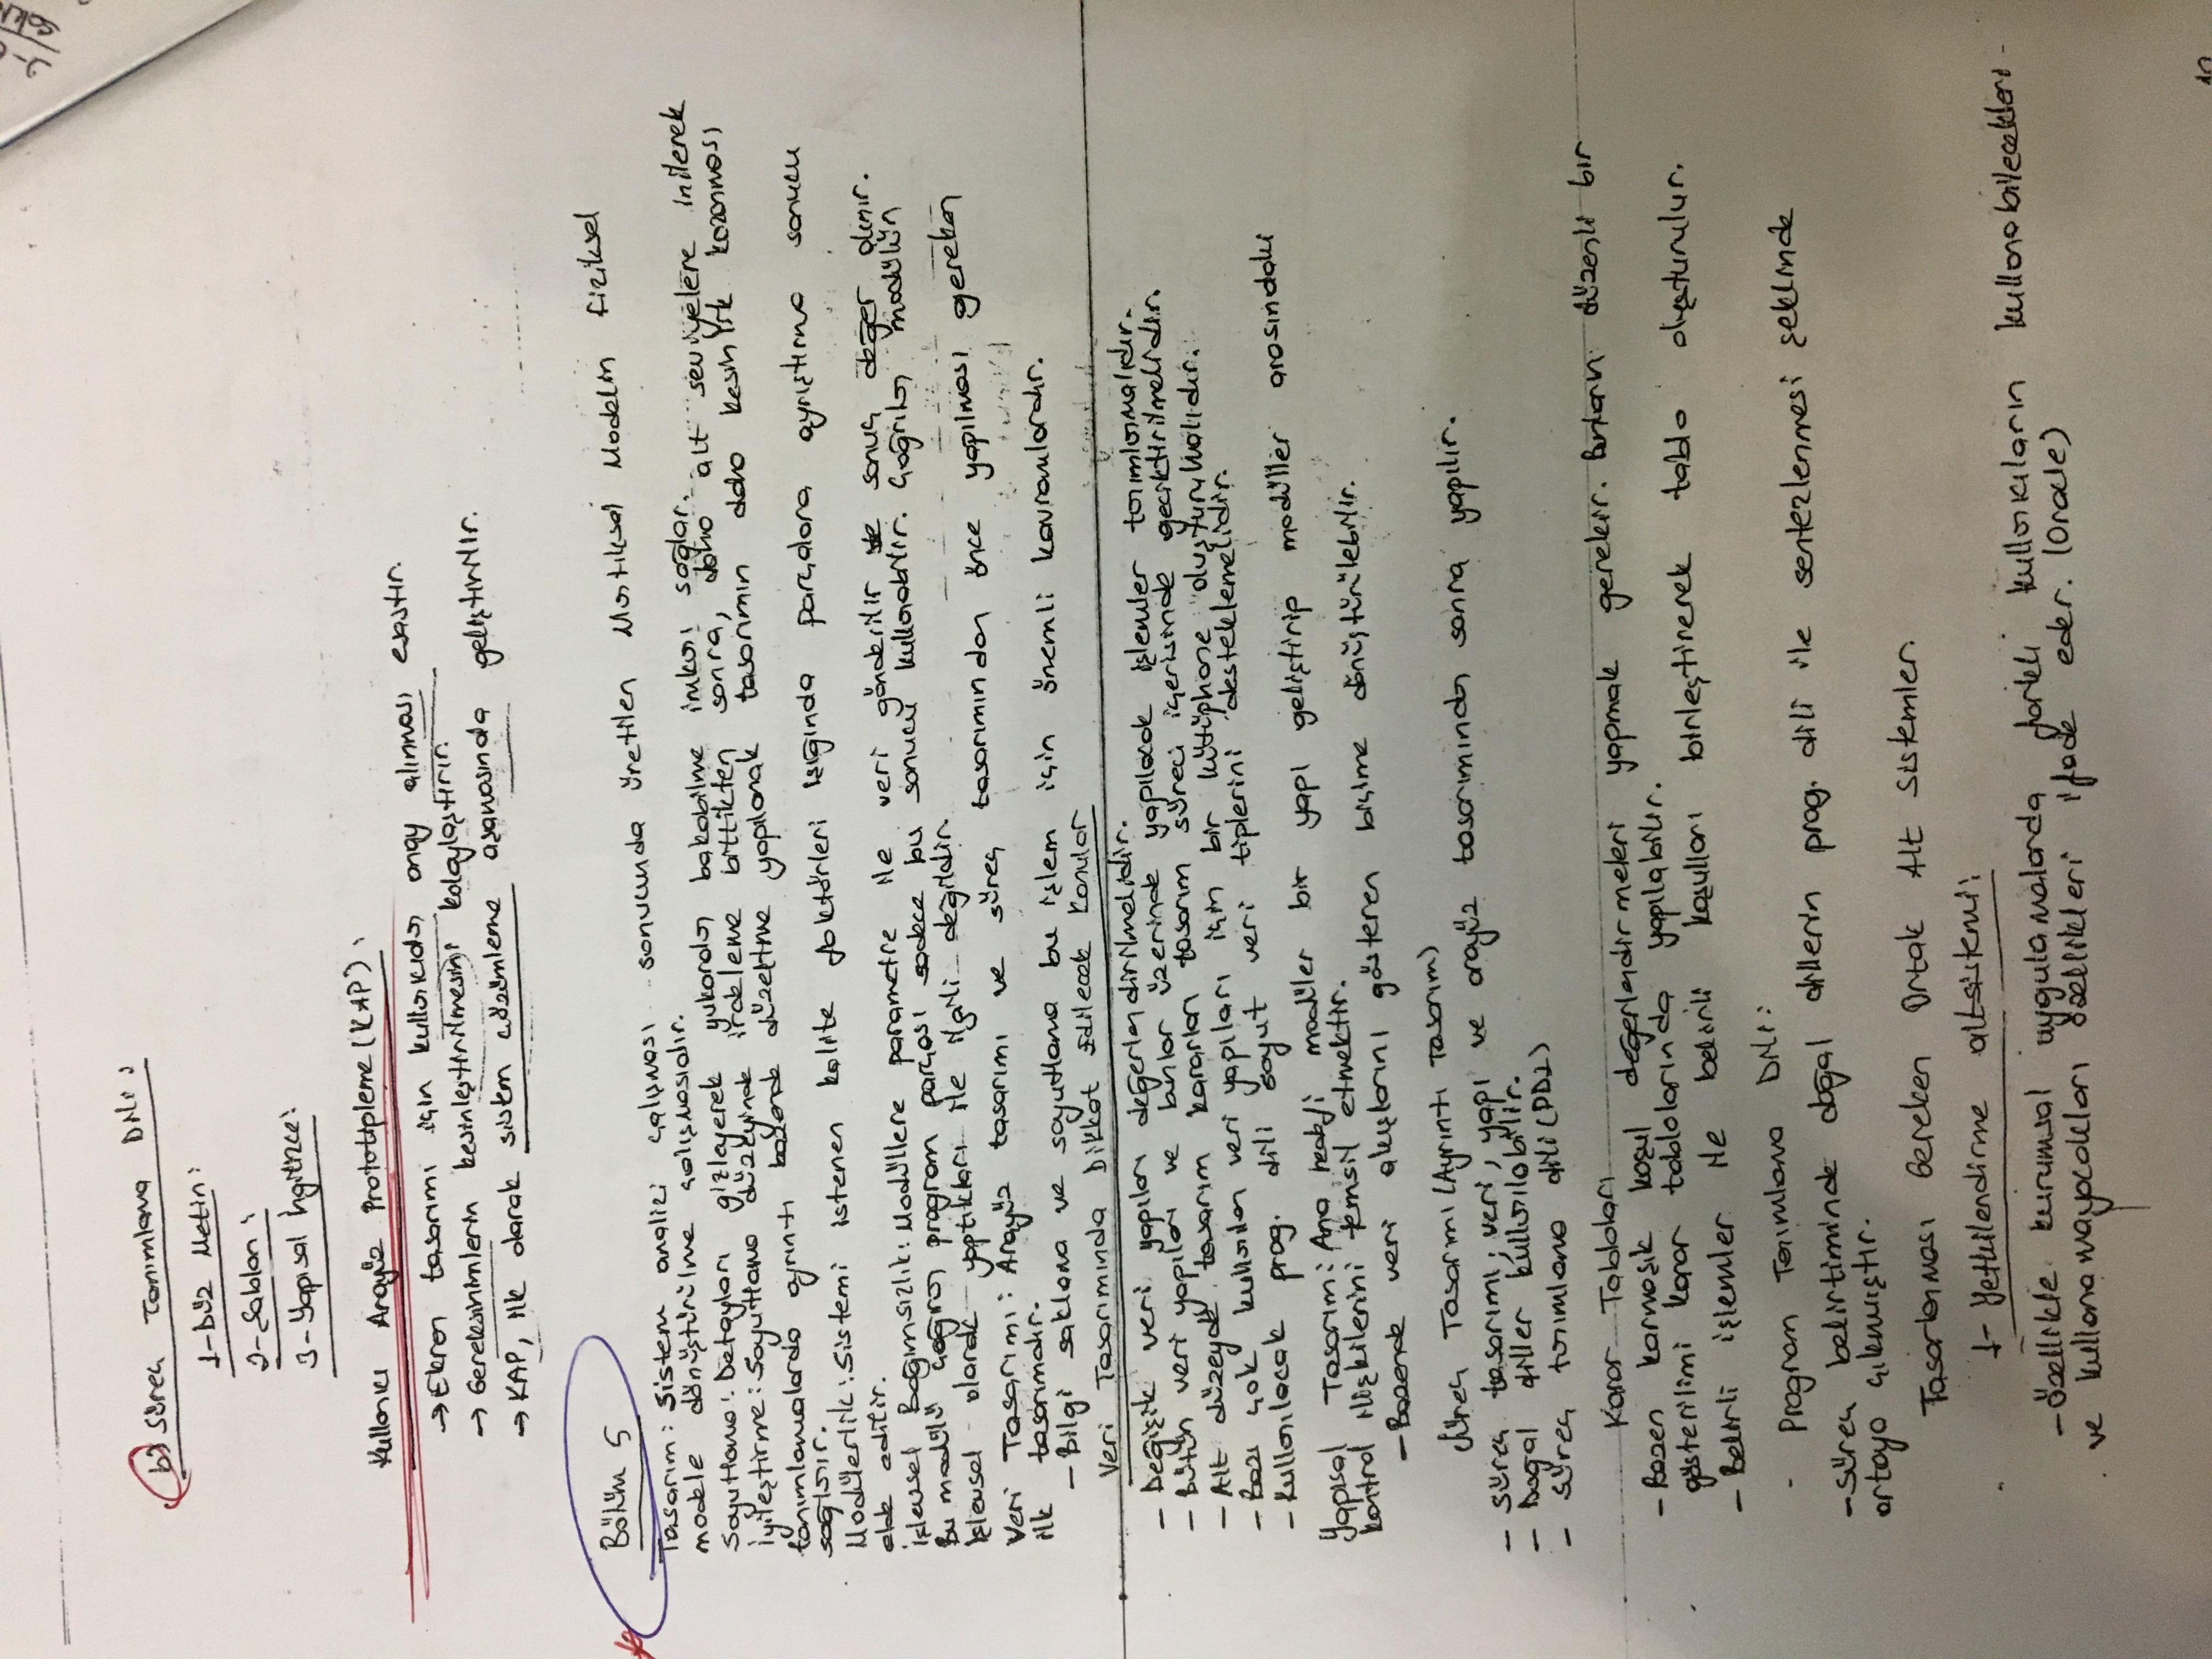 b) Süreç Tanımlama Dili:
1-Düz Metin:
2-Şablon:
3-Yapısal İngilizce:
Kullanıcı Arayüz Prototipleme (KAP):
→ Ekran tasarımı için kullanıcıdan onay alınması esastır.
→ Gereksinimlerin kesinleştirilmesini kolaylaştırır.
→ KAP, ilk olarak sistem çözümleme aşamasında geliştirilir.
Bölüm 5
Tasarım: Sistem analizi çalışması sonucunda üretilen Mantıksal Modelin fiziksel
modele dönüştürülme çalışmasıdır.
Soyutlama: Detayları gizleyerek yukarıdan bakabilme imkanı sağlar.
İyileştirme: Soyutlama düzeyinde irdeleme bittikten sonra, daha alt seviyelere inilerek
tanımlamalarda ayrıntı bazende düzeltme yapılarak tasarımın daha kesinlik kazanması
sağlanır.
Modülerlik: Sistemi istenen kalite faktörleri ışığında parçalara ayrıştırma sonucu
elde edilir.
İşlevsel Bağımsızlık: Modüllere parametre ile veri gönderilir ve sonuç değer alınır.
Bu modülü çağıran program parçası sadece bu sonucu kullanabilir. Çağrılan modülün
işlevsel olarak yaptıkları ile ilgili değildir.
Veri Tasarımı: Arayüz tasarımı ve süreç tasarımından önce yapılması gereken
ilk tasarımdır.
- Bilgi saklama ve soyutlama bu işlem için önemli kavramlardır.
Veri Tasarımında Dikkat Edilecek Konular
- Değişik veri yapıları değerlendirilmelidir.
- Bütün veri yapıları ve bunlar üzerinde yapılacak işlemler tanımlanmalıdır.
- Alt düzeyde tasarım kararları tasarım süreci içerisinde geciktirilmelidir.
- Bazı çok kullanılan veri yapıları için bir kütüphane oluşturulmalıdır.
- Kullanılacak prog. dili soyut veri tiplerini desteklemelidir.
Yapısal Tasarım: Ana hedefi modüler bir yapı geliştirip modüller arasındaki
kontrol ilişkilerini temsil etmektir.
- Bazende veri akışlarını gösteren biçime dönüştürülebilir.
Süreç Tasarımı (Ayrıntı Tasarım)
- Süreç tasarımı; veri, yapı ve arayüz tasarımından sonra yapılır.
- Doğal diller kullanılabilir.
- Süreç tanımlama dili (PDL)
Karar Tabloları
- Bazen karmaşık koşul değerlendirmeleri yapmak gerekir. Bunların düzenli bir
gösterilimi karar tablolarında yapılabilir.
- Belirli işlemler ile belirli koşulları birleştirerek tablo oluşturulur.
- Program Tanımlama Dili:
- Süreç belirtiminde doğal dillerin prog. dili ile sentezlenmesi şeklinde
ortaya çıkmıştır.
Tasarlanması Gereken Ortak Alt Sistemler.
1- Yetkilendirme altsistemi:
- özellikle kurumsal uygulamalarda farklı kullanıcıların kullanabilecekleri
ve kullanamayacakları özellikleri ifade eder. (Oracle)